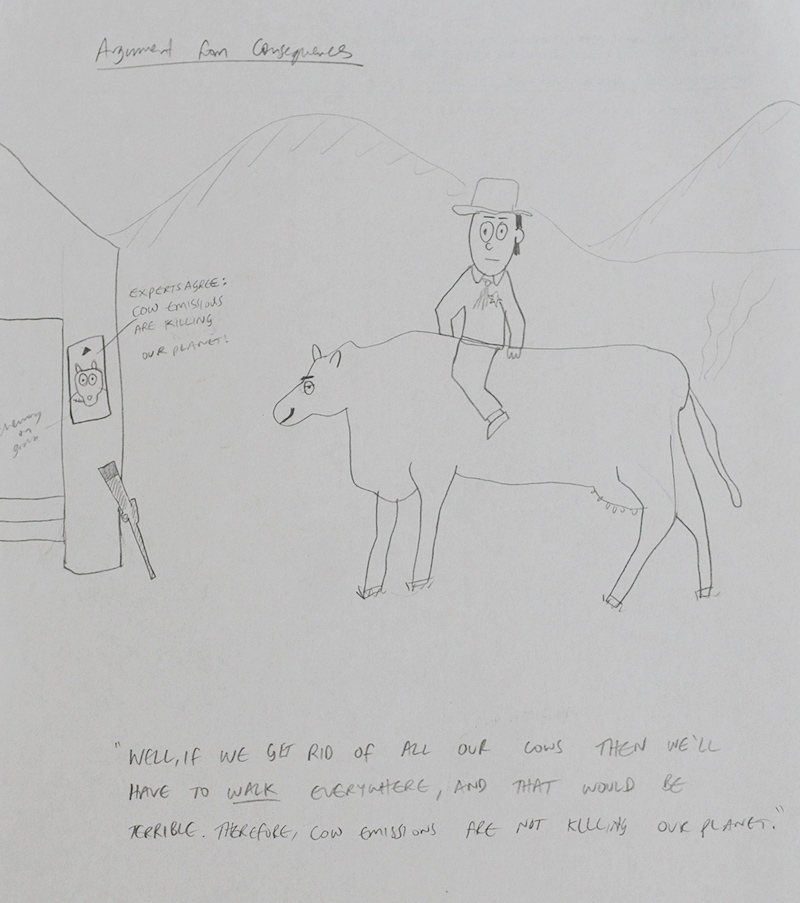 Argument from Consequences
EXPERTS AGREE:
COW EMISSIONS
ARE KILLING
OUR PLANET!
chewing
on
"WELL, IF WE GET RID OF ALL OUR COWS THEN WE'LL
HAVE TO WALK EVERYWHERE, AND THAT WOULD BE
TERRIBLE. THEREFORE, COW EMISSIONS ARE NOT KILLING OUR PLANET."